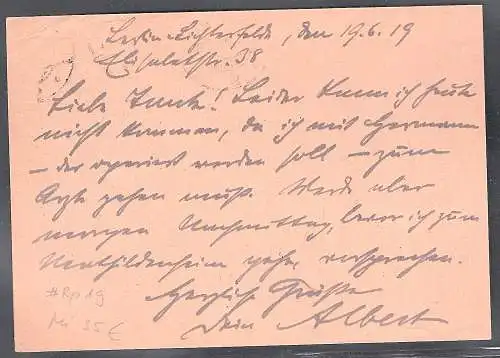 Berlin-Lichterfelde, den 19.6.19
Elisabethstr. 38
Liebe Tante! Leider kann ich heute
nicht kommen, da ich mit Hermann
– der operiert werden soll – zum
Arzt gehen muß. Werde aber
morgen Nachmittag, bevor ich zum
Mathildenheim gehe, vorsprechen.
Herzliche Grüße
Dein Albert
#Rp19
Mi 35€